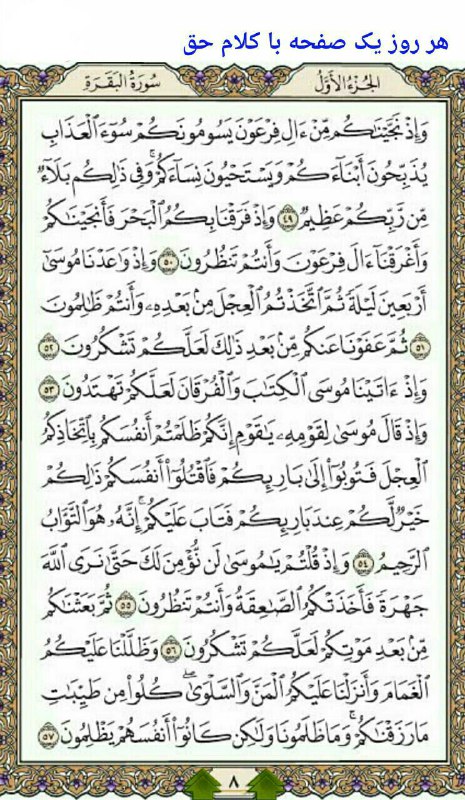 هر روز یک صفحه با کلام حق
الجُزءُ الأَوَّلُ
سُورَةُ البَقَرَةِ
وَإِذْ نَجَّيْنَاكُم مِّنْ ءَالِ فِرْعَوْنَ يَسُومُونَكُمْ سُوٓءَ الْعَذَابِ
يُذَبِّحُونَ أَبْنَآءَكُمْ وَيَسْتَحْيُونَ نِسَآءَكُمْ ۚ وَفِى ذَٰلِكُم بَلَآءٌ
مِّن رَّبِّكُمْ عَظِيمٌ ﴿٤٩﴾ وَإِذْ فَرَقْنَا بِكُمُ الْبَحْرَ فَأَنجَيْنَاكُمْ
وَأَغْرَقْنَآ ءَالَ فِرْعَوْنَ وَأَنتُمْ تَنظُرُونَ ﴿٥٠﴾ وَإِذْ وَاعَدْنَا مُوسَىٰٓ
أَرْبَعِينَ لَيْلَةً ثُمَّ اتَّخَذْتُمُ الْعِجْلَ مِنۢ بَعْدِهِۦ وَأَنتُمْ ظَالِمُونَ
﴿٥١﴾ ثُمَّ عَفَوْنَا عَنكُم مِّنۢ بَعْدِ ذَٰلِكَ لَعَلَّكُمْ تَشْكُرُونَ ﴿٥٢﴾
وَإِذْ ءَاتَيْنَا مُوسَى الْكِتَابَ وَالْفُرْقَانَ لَعَلَّكُمْ تَهْتَدُونَ ﴿٥٣﴾
وَإِذْ قَالَ مُوسَىٰ لِقَوْمِهِۦ يَاقَوْمِ إِنَّكُمْ ظَلَمْتُمْ أَنفُسَكُم بِاتِّخَاذِكُمُ
الْعِجْلَ فَتُوبُوٓا۟ إِلَىٰ بَارِئِكُمْ فَاقْتُلُوٓا۟ أَنفُسَكُمْ ذَٰلِكُمْ
خَيْرٌ لَّكُمْ عِندَ بَارِئِكُمْ فَتَابَ عَلَيْكُمْ ۚ إِنَّهُۥ هُوَ التَّوَّابُ
الرَّحِيمُ ﴿٥٤﴾ وَإِذْ قُلْتُمْ يَامُوسَىٰ لَن نُّؤْمِنَ لَكَ حَتَّىٰ نَرَى اللَّهَ
جَهْرَةً فَأَخَذَتْكُمُ الصَّاعِقَةُ وَأَنتُمْ تَنظُرُونَ ﴿٥٥﴾ ثُمَّ بَعَثْنَاكُم
مِّنۢ بَعْدِ مَوْتِكُمْ لَعَلَّكُمْ تَشْكُرُونَ ﴿٥٦﴾ وَظَلَّلْنَا عَلَيْكُمُ
الْغَمَامَ وَأَنزَلْنَا عَلَيْكُمُ الْمَنَّ وَالسَّلْوَىٰ ۖ كُلُوا۟ مِن طَيِّبَاتِ
مَا رَزَقْنَاكُمْ ۖ وَمَا ظَلَمُونَا وَلَٰكِن كَانُوٓا۟ أَنفُسَهُمْ يَظْلِمُونَ ﴿٥٧﴾
٨